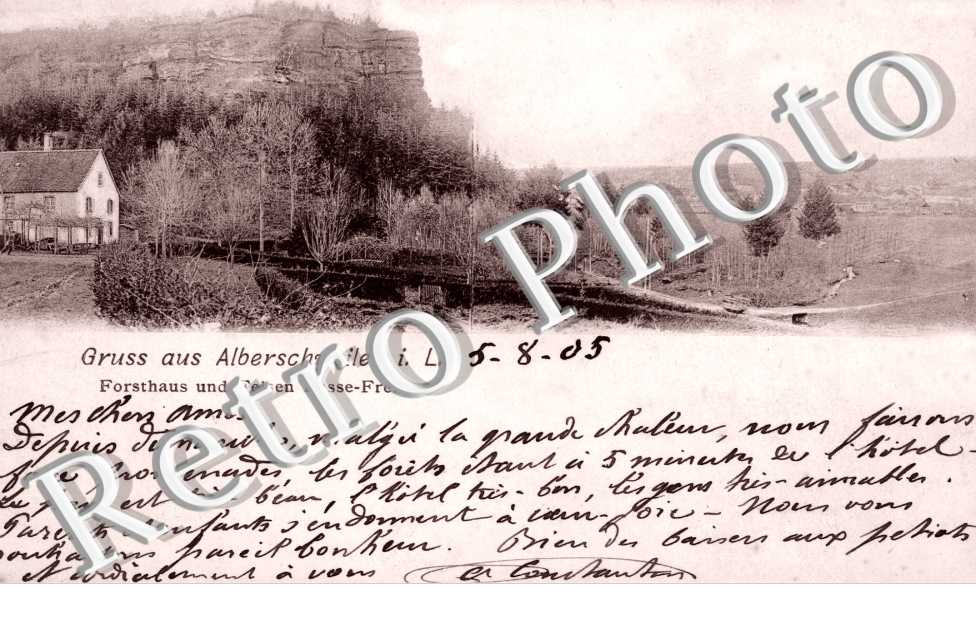 Gruss aus Alberschweiler i. L. 5-8-05
Forsthaus und Felsen
Retro Photo
Mes chers Amis
Depuis malgré la grande chaleur, nous faisons
promenades, les forêts étant à 5 minutes de l'hôtel-
est beau, l'hôtel très-bon, les gens très-aimables.
Parents enfants s'endonnent à cœur-joie - Nous vous
souhaitons pareil bonheur. Bien des baisers aux petiots
et cordialement à vous Constantin